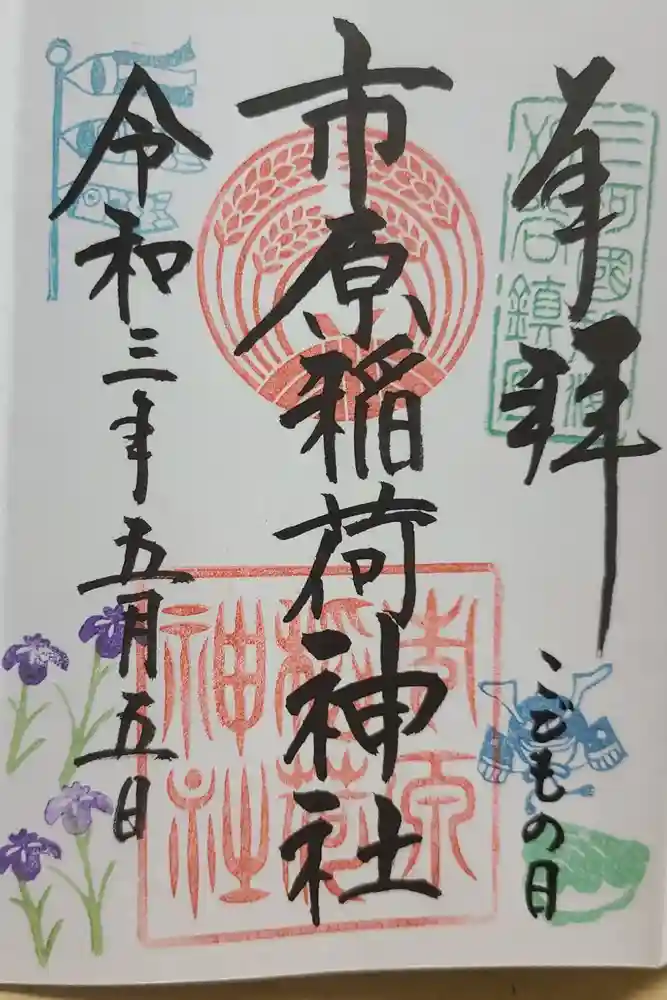 奉拝
こどもの日
市原稲荷神社
令和三年五月五日
市原
稲荷
神社